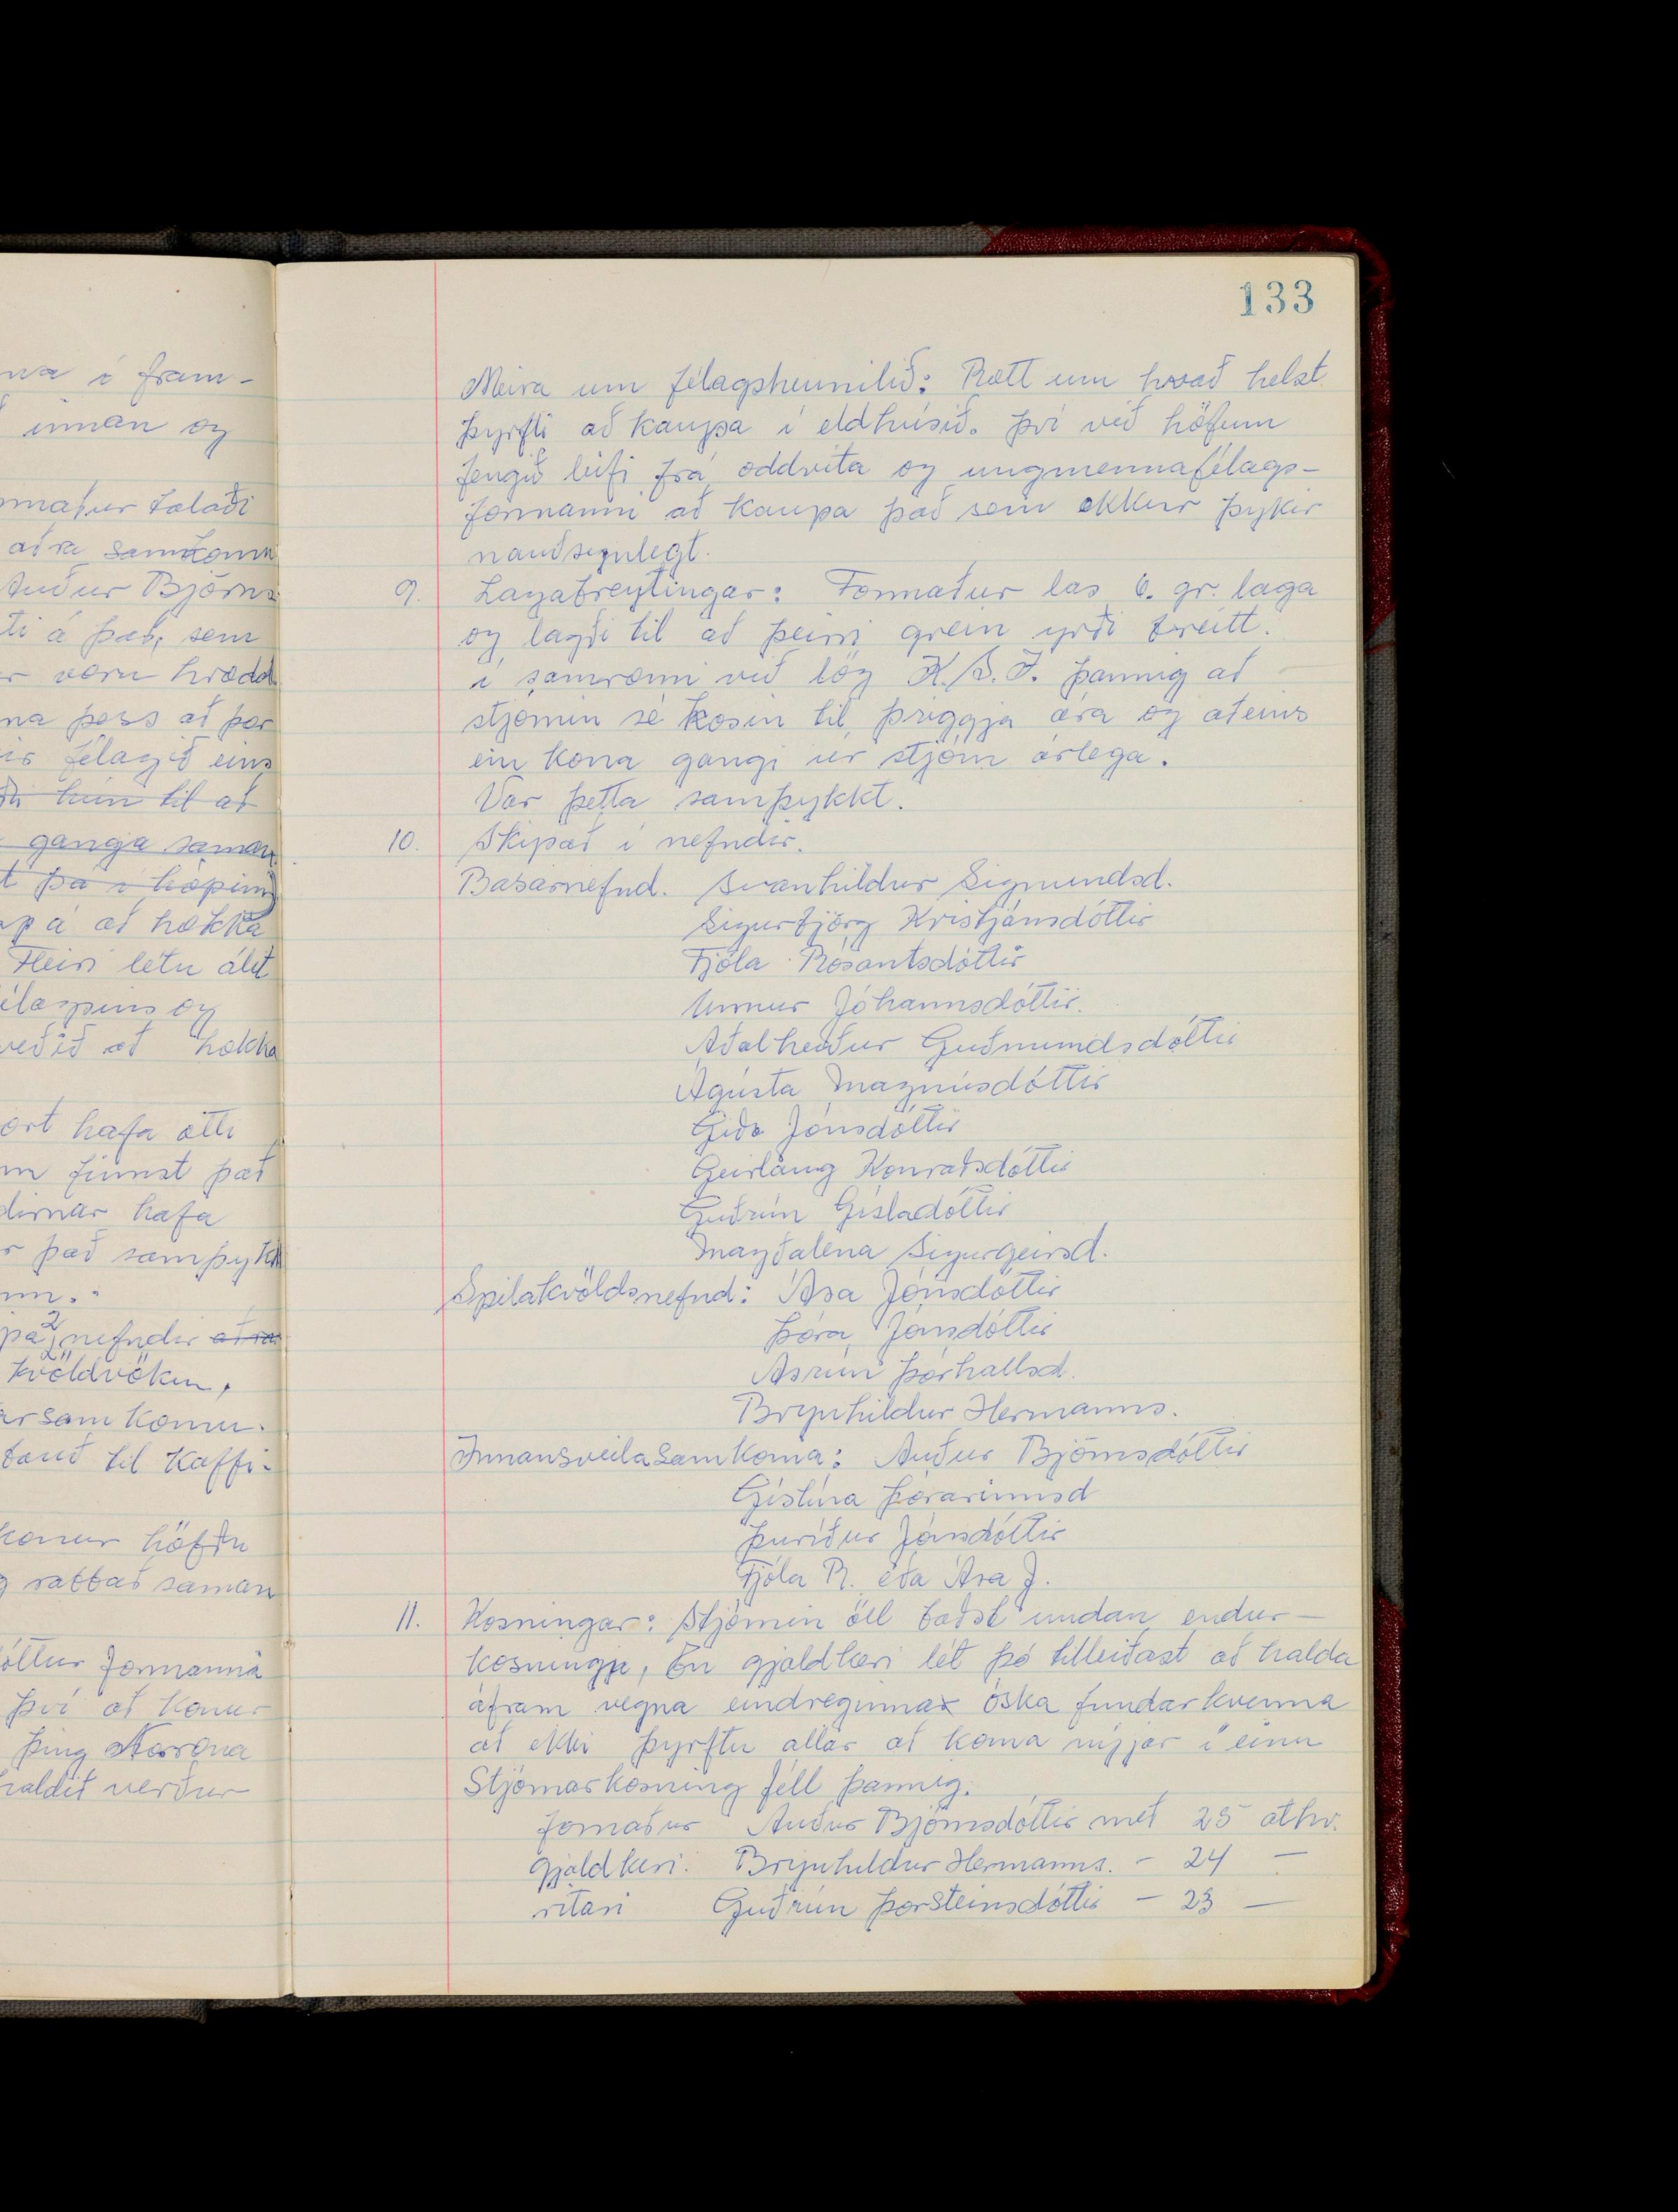 na í fram-
innan og
maður talaði
aðra samkomu
Auður Björns
ti á það, sem
r voru hrædd
na þess að þær
ir félagið eins
hún til að
ganga saman
þá í hópinn
upp á að hækka
Fleiri létu álit
élagsins og
veðið að hækka
ort hafa átti
m finnst það
dirnar hafa
r það samþykk
nn.
þá 2 nefndir aðra
kvöldvökur,
arsamkomu.
band til kaffi-
konur höfðu
g rabbað saman
óttur formanna
því að konur
þing Norræna
haldið verður
133
Meira um félagsheimilið: Rætt um hvað helst
þyrfti að kaupa í eldhúsið. því við höfum
fengið leifi frá oddvita og ungmennafélags-
formanni að kaupa það sem okkur þykir
nauðsynlegt.
9. Lagabreytingar: Formaður las 6. gr. laga
og lagði til að þeirri grein yrði breitt.
í samræmi við lög K.S.Þ. þannig að
stjórnin sé kosin til þriggja ára og aðeins
ein kona gangi úr stjórn árlega.
Var þetta samþykkt.
10. Skipað í nefndir.
Basarnefnd. Svanhildur Sigmundsd.
Sigurbjörg Kristjánsdóttir
Fjóla Rósantsdóttir
Unnur Jóhannsdóttir.
Aðalheiður Guðmundsdóttir
Ágústa Magnúsdóttir
Gíða Jónsdóttir
Geirlaug Konráðsdóttir
Guðrún Gísladóttir
Magðalena Sigurgeirsd.
Spilakvöldsnefnd: Ása Jónsdóttir
Þóra Jónsdóttir
Ásrún Þórhallsd.
Brynhildur Hermanns.
Innansveitasamkoma: Auður Björnsdóttir
Gíslína Þórarinnsd
Þuríður Jónsdóttir
Fjóla R. eða Ása J.
11. Kosningar: Stjórnin öll baðst undan endur-
kosningu, En gjaldkeri lét þó tilleiðast að halda
áfram vegna eindreginna óska fundarkvenna
að ekki þyrftu allar að koma nýjar í einu
Stjórnarkosning féll þannig.
formaður Auður Björnsdóttir með 25 atkv.
gjaldkeri. Brynhildur Hermanns. - 24 -
ritari Guðrún Þorsteinsdóttir - 23 -